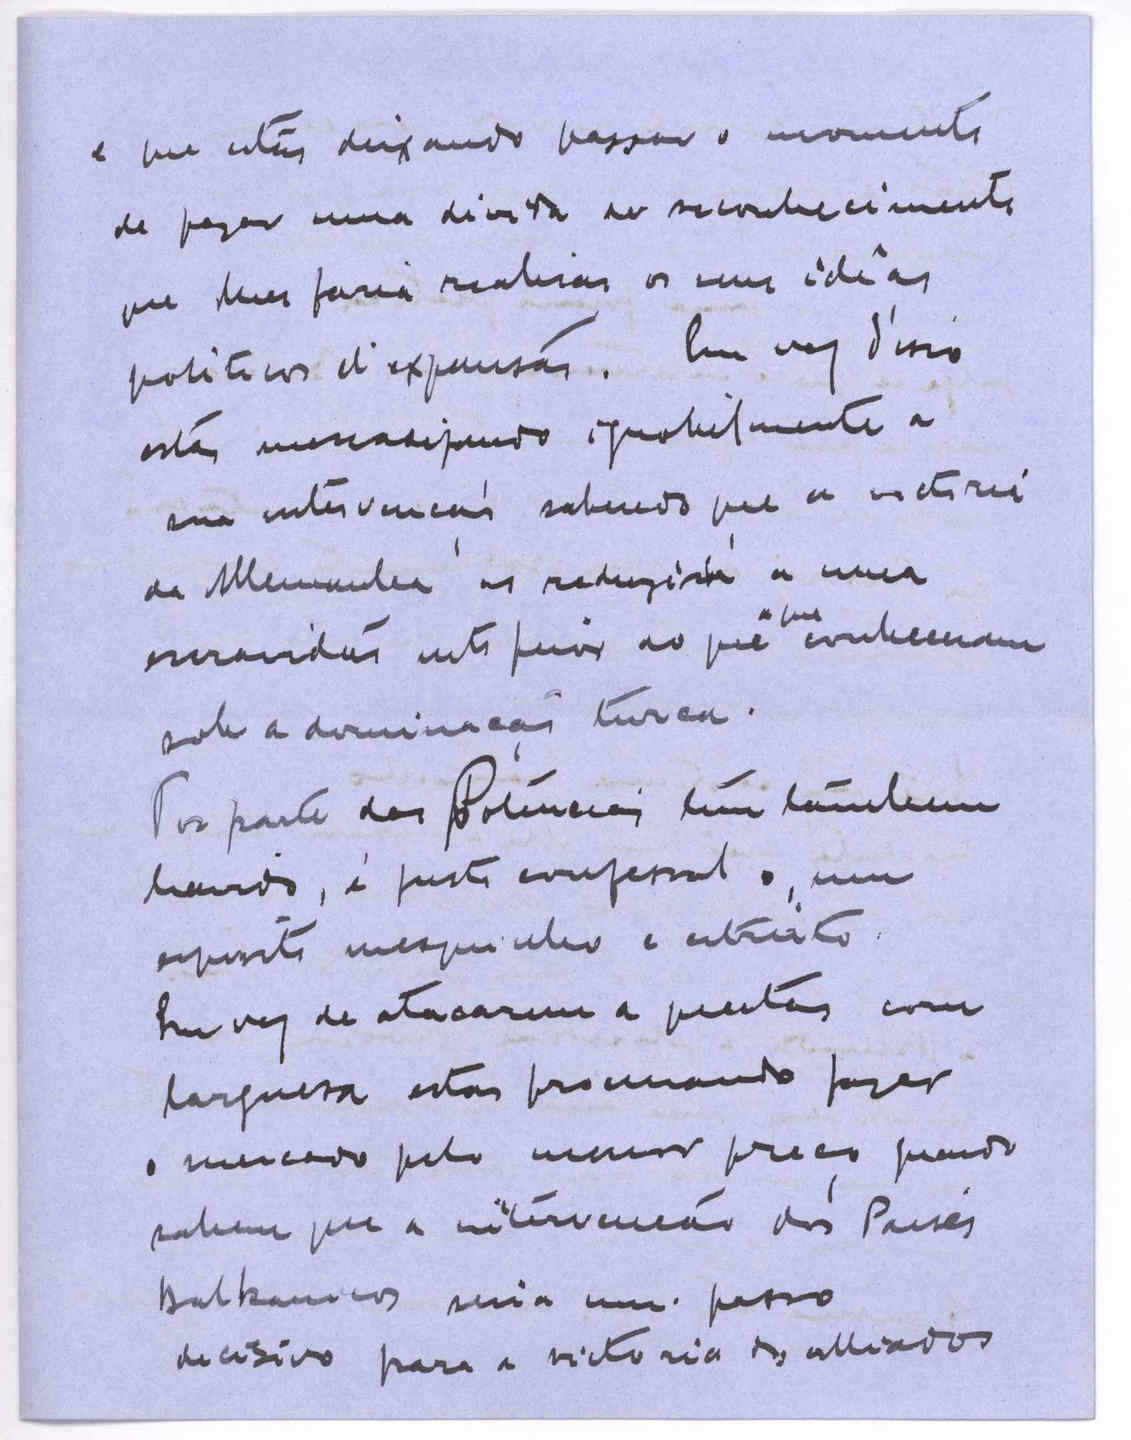 e que estão deixando passar o momento
de pagar uma divida de reconhecimento
que lhes faria realisar os seus idêas
politicos d'expansão. Em vez d'isso
estão mercadejando ignobilmente a
sua intervenção sabendo que a victoria
da Allemanha os reduziria a uma
escravidão inferior ao que a que conheceram
sob a dominação turca.
Por parte das Potências têm tâmbem
havido, é justo confessal o, um
espirito mesquinho e estreito.
Em vez de atacarem a questão com
larguesa estão procurando fazer
o mercado pelo menor preço quando
sabem que a intervenção dos Paises
Balkanicos seria um passo
decisivo para a victoria dos alliados